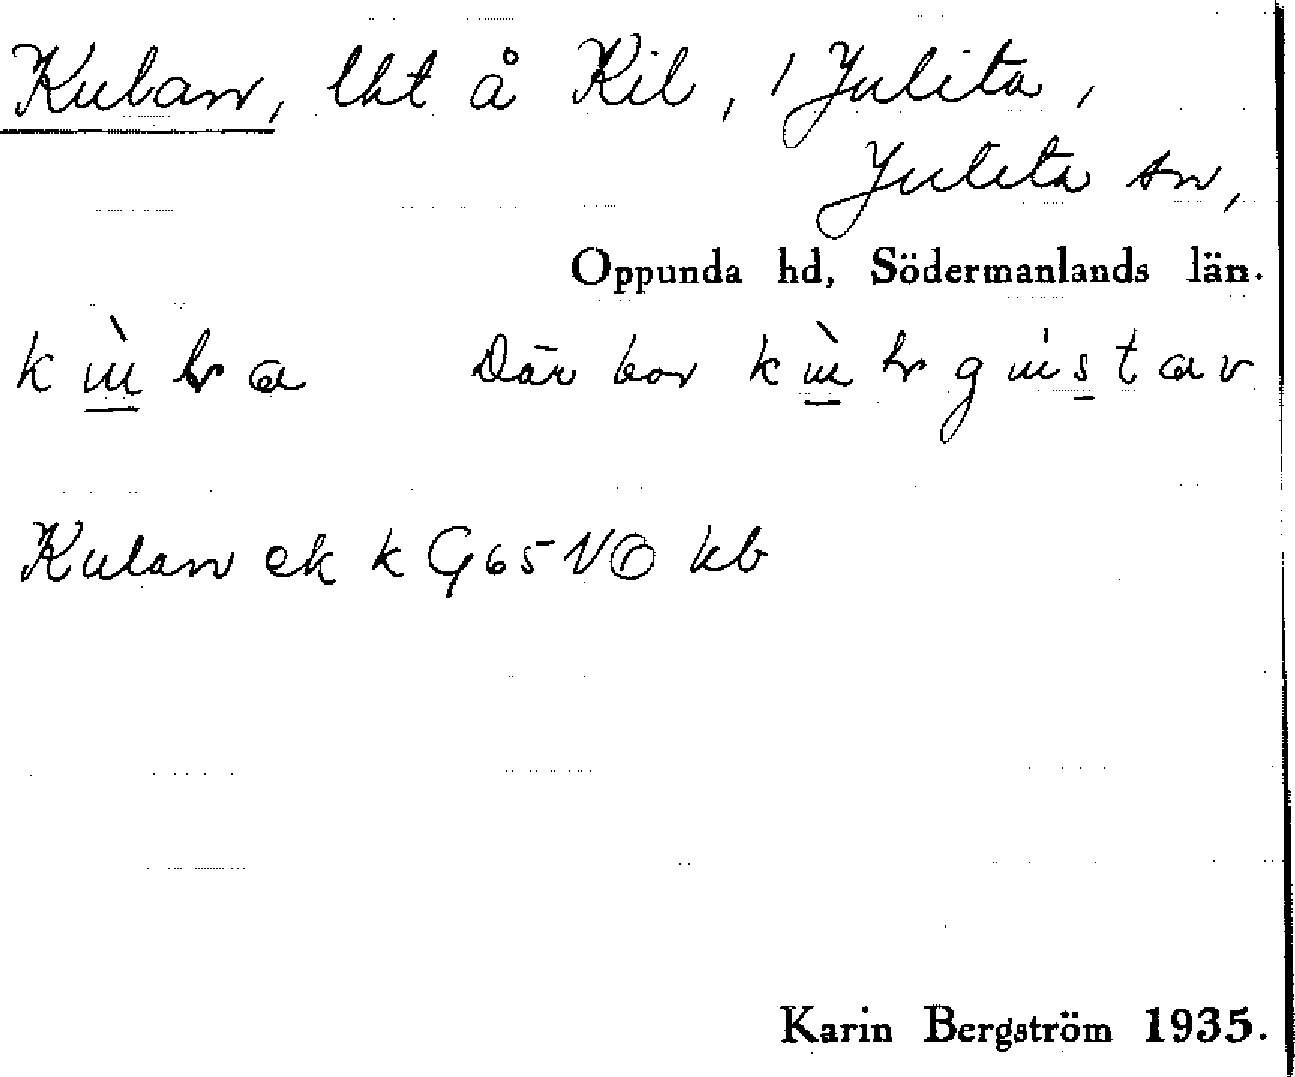 Kulan, lht å Kil, 1 Julita,
Julita sn,
Oppunda hd, Södermanlands län.
Där bor
Kulan ek k G65 NO kb
Karin Bergström 1935.